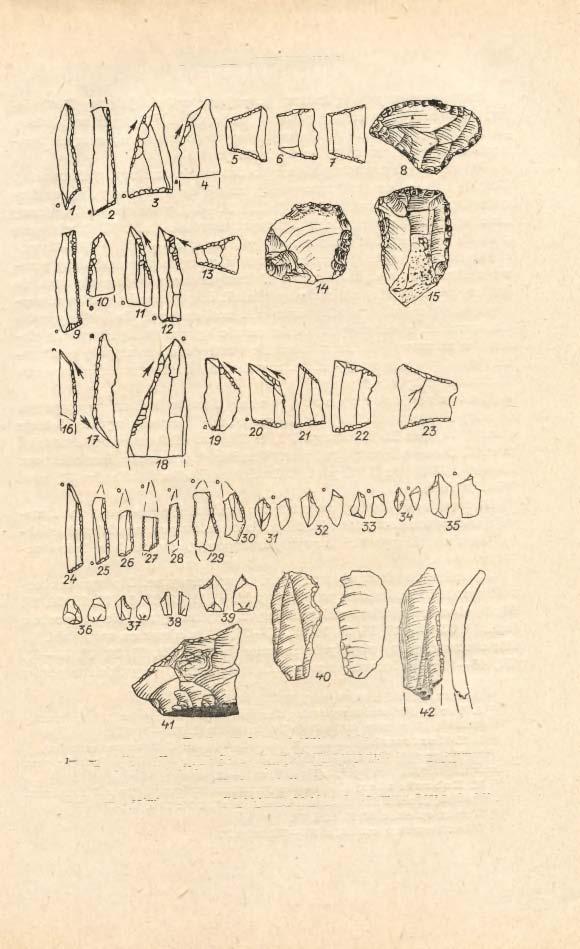 1 2 3 4 5 6 7 8
9 10 11 12 13 14 15
16 17 18 19 20 21 22 23
24 25 26 27 28 29 30 31 32 33 34 35
36 37 38 39 40
41 42
1—